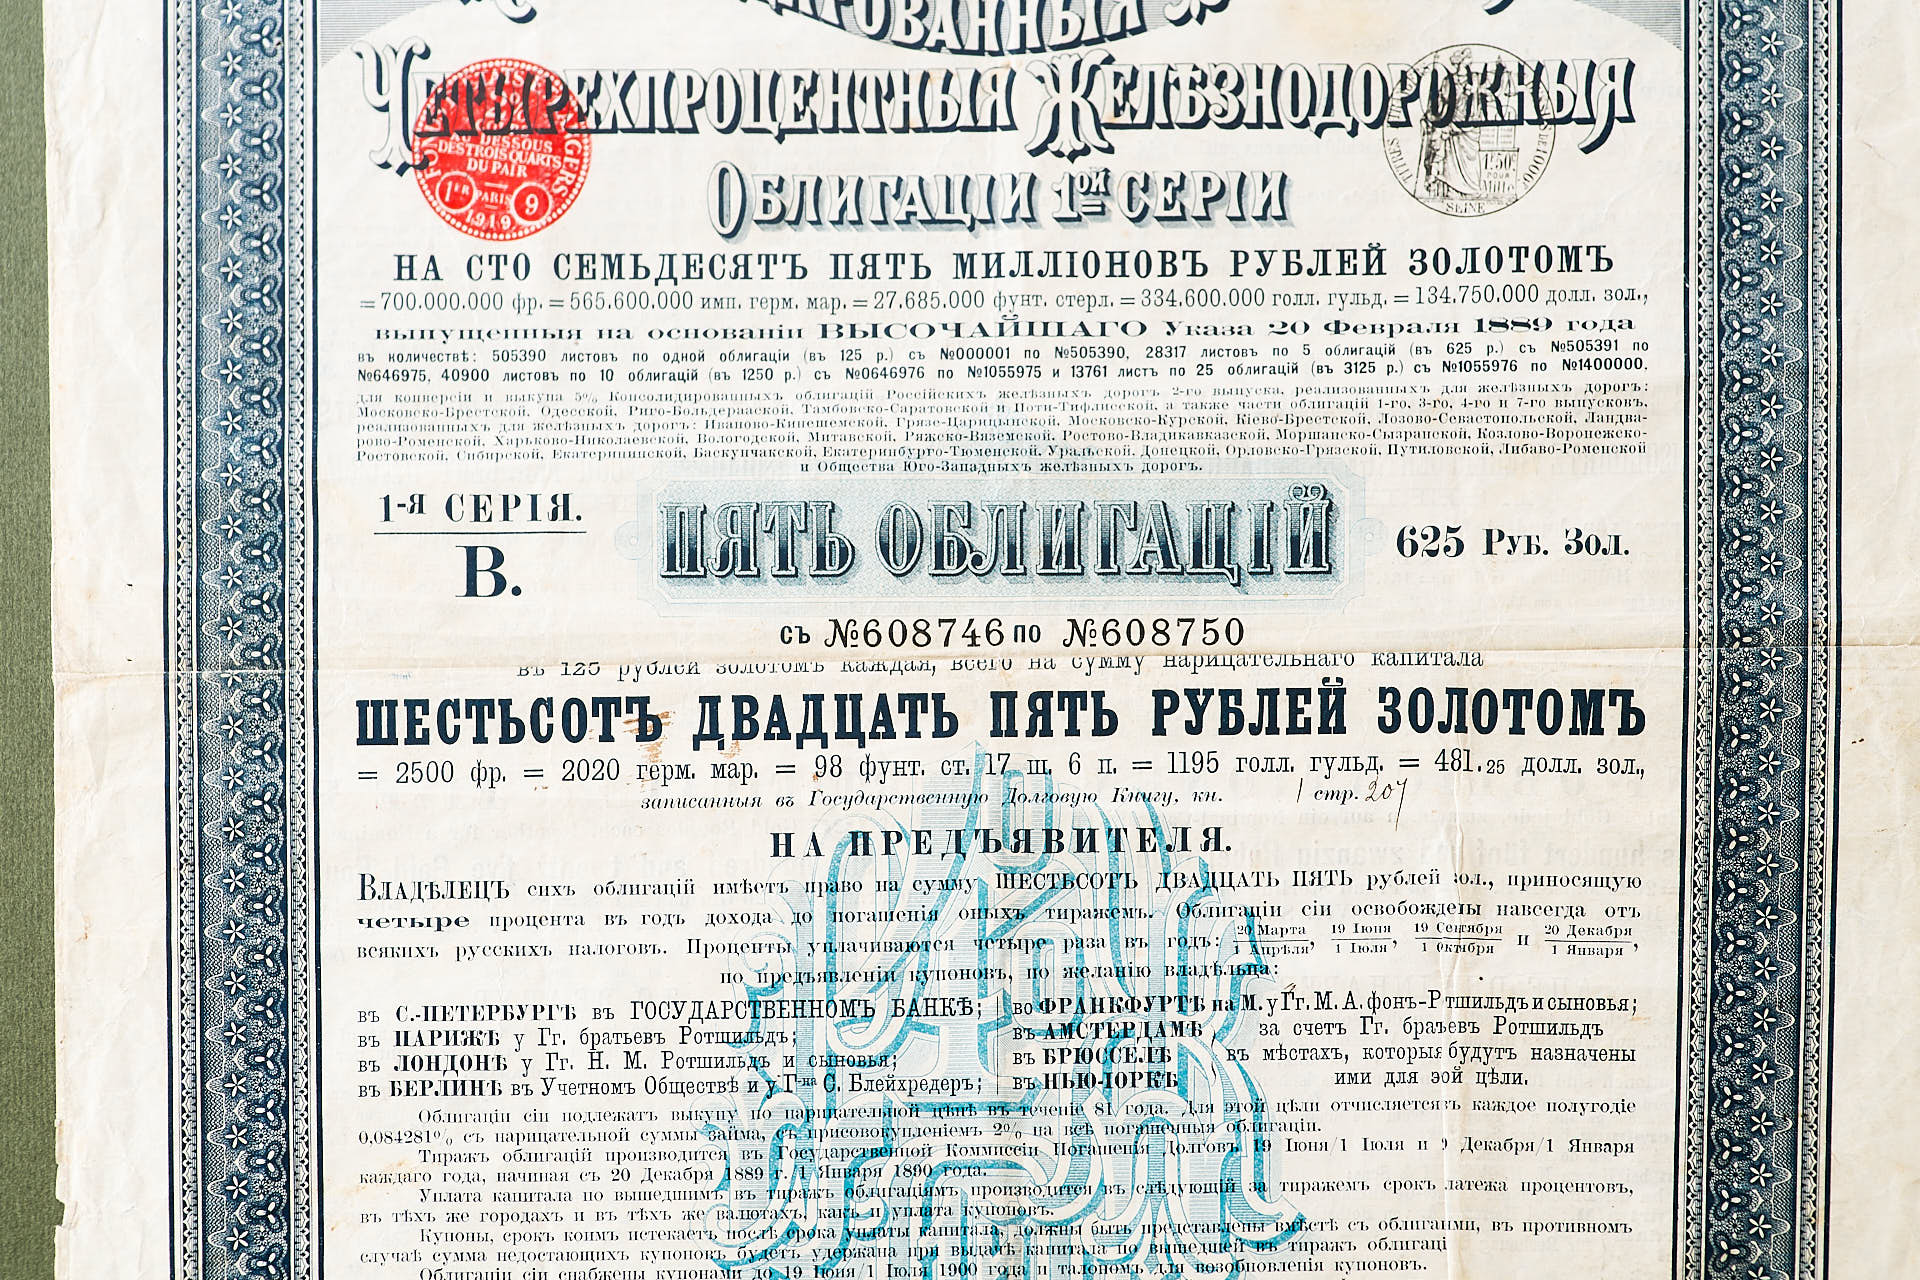 ЧЕТЫРЕХПРОЦЕНТНЫЯ ЖЕЛѢЗНОДОРОЖНЫЯ
ОБЛИГАЦІИ 1ОЙ СЕРІИ
DESSOUS
DES TROIS QUARTS
DU PAIR
1ER PARIS 9
1919
1F50C
POUR
SEINE
НА СТО СЕМЬДЕСЯТЪ ПЯТЬ МИЛЛІОНОВЪ РУБЛЕЙ ЗОЛОТОМЪ
=700.000.000 фр.=565.600.000 имп. герм. мар.=27.685.000 фунт. стерл.=334.600.000 голл. гульд.=134.750.000 долл. зол.,
выпущенныя на основаніи ВЫСОЧАЙШАГО Указа 20 Февраля 1889 года
въ количествѣ: 505390 листовъ по одной облигаціи (въ 125 р.) съ №000001 по №505390, 28317 листовъ по 5 облигацій (въ 625 р.) съ №505391 по
№646975, 40900 листовъ по 10 облигацій (въ 1250 р.) съ №0646976 по №1055975 и 13761 листъ по 25 облигацій (въ 3125 р.) съ №1055976 по №1400000.
для конверсіи и выкупа 5% Консолидированныхъ облигацій Россійскихъ желѣзныхъ дорогъ 2-го выпуска, реализованныхъ для желѣзныхъ дорогъ:
Московско-Брестской, Одесской, Риго-Больдерааской, Тамбовско-Саратовской и Поти-Тифлисской, а также части облигацій 1-го, 3-го, 4-го и 7-го выпусковъ,
реализованныхъ для желѣзныхъ дорогъ: Иваново-Кинешемской, Грязе-Царицынской, Московско-Курской, Кіево-Брестской, Лозово-Севастопольской, Ландва-
рово-Роменской, Харьково-Николаевской, Вологодской, Митавской, Ряжско-Вяземской, Ростово-Владикавказской, Моршанско-Сызранской, Козлово-Воронежско-
Ростовской, Сибирской, Екатерининской, Баскунчакской, Екатеринбурго-Тюменской, Уральской, Донецкой, Орловско-Грязской, Путиловской, Либаво-Роменской
и Общества Юго-Западныхъ желѣзныхъ дорогъ.
1-Я СЕРІЯ.
В.
ПЯТЬ ОБЛИГАЦІЙ
625 РУБ. ЗОЛ.
съ №608746 по №608750
въ 125 рублей золотомъ каждая, всего на сумму нарицательнаго капитала
ШЕСТЬСОТЪ ДВАДЦАТЬ ПЯТЬ РУБЛЕЙ ЗОЛОТОМЪ
= 2500 фр. = 2020 герм. мар. = 98 фунт. ст. 17 ш. 6 п. = 1195 голл. гульд. = 481.25 долл. зол.,
записанныя въ Государственную Долговую Книгу, кн. 1 стр. 207
НА ПРЕДЪЯВИТЕЛЯ.
ВЛАДѢЛЕЦЪ сихъ облигацій имѣетъ право на сумму ШЕСТЬСОТЪ ДВАДЦАТЬ ПЯТЬ рублей зол., приносящую
четыре процента въ годъ дохода до погашенія оныхъ тиражемъ. Облигаціи сіи освобождены навсегда отъ
всякихъ русскихъ налоговъ. Проценты уплачиваются четыре раза въ годъ: 20 Марта/1 Апрѣля, 19 Іюня/1 Іюля, 19 Сентября/1 Октября и 20 Декабря/1 Января,
по предъявленіи купоновъ, по желанію владѣльца:
въ С.-ПЕТЕРБУРГѢ въ ГОСУДАРСТВЕННОМЪ БАНКѢ;
въ ПАРИЖѢ у Гг. братьевъ Ротшильдъ;
въ ЛОНДОНѢ у Гг. Н. М. Ротшильдъ и сыновья;
въ БЕРЛИНѢ въ Учетномъ Обществѣ и у Г-на С. Блейхредеръ;
во ФРАНКФУРТѢ на М. у Гг. М. А. фонъ-Ртшильдъ и сыновья;
въ АМСТЕРДАМѢ за счетъ Гг. братьевъ Ротшильдъ
въ БРЮССЕЛѢ въ мѣстахъ, которыя будутъ назначены
въ НЬЮ-ІОРКѢ ими для эой цѣли.
Облигаціи сіи подлежатъ выкупу по нарицательной цѣнѣ въ теченіе 81 года. Для этой цѣли отчисляется каждое полугодіе
0,084281% съ нарицательной суммы займа, съ присовокупленіемъ 2% на всѣ погашенныя облигаціи.
Тиражъ облигацій производится въ Государственной Коммиссіи Погашенія Долговъ 19 Іюня/1 Іюля и Декабря/1 Января
каждаго года, начиная съ 20 Декабря 1889 г./1 Января 1890 года.
Уплата капитала по вышедшимъ въ тиражъ облигаціямъ производится въ слѣдующій за тиражемъ срокъ латежа процентовъ,
въ тѣхъ же городахъ и въ тѣхъ же валютахъ, какъ и уплата купоновъ.
Купоны, срокъ коимъ истекаетъ послѣ срока уплаты капитала, должны быть представлены вмѣстѣ съ облигаиями, въ противномъ
случаѣ сумма недостающихъ купоновъ будетъ удержана при выдачѣ капитала по вышедшей въ тиражъ облигаці
Облигаціи сіи снабжены купонами до 19 Іюня/1 Іюля 1900 года и талономъ для возобновленія купоновъ.